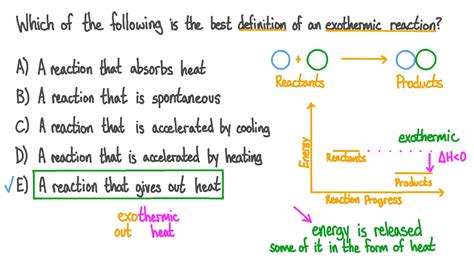 Which of the following is the best definition of an exothermic reaction?
A) A reaction that absorbs heat
B) A reaction that is spontaneous
C) A reaction that is accelerated by cooling
D) A reaction that is accelerated by heating
✓ E) A reaction that gives out heat
exothermic
out heat
+ →
Reactants Products
Energy
exothermic
Reactants
ΔH<0
Products
Reaction Progress
energy is released
some of it in the form of heat